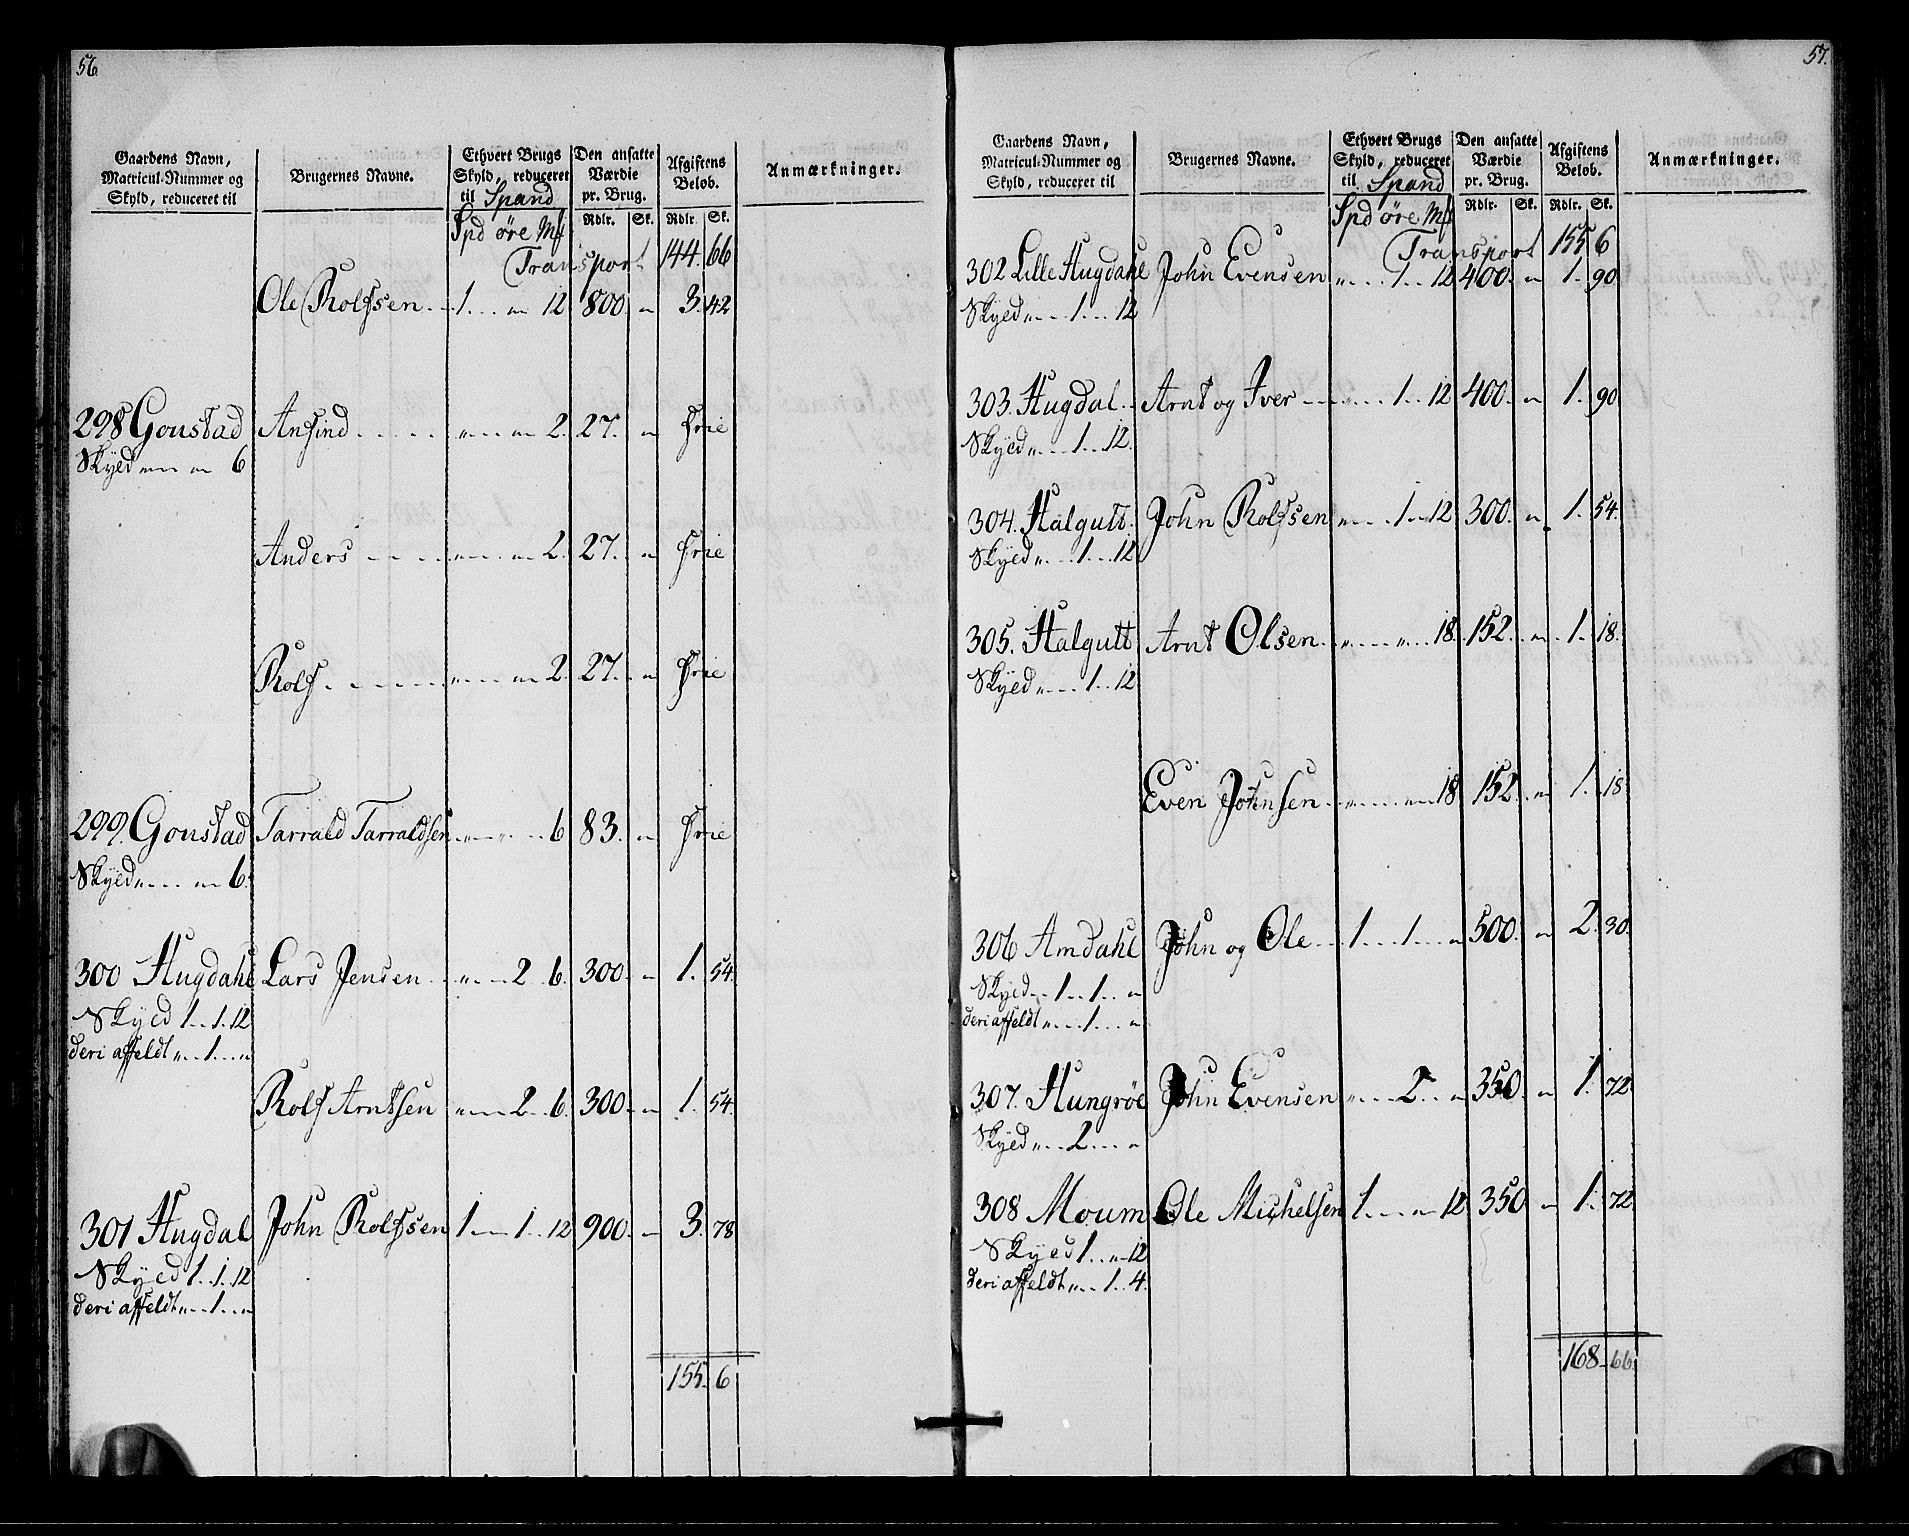 56
Gaardens Navn, Matricul-Nummer og Skyld, reduceret til
Brugernes Navne.
Ethvert Brugs Skyld, reduceret til Spand
Den ansatte Værdie pr. Brug.
Afgiftens Beløb.
Anmærkninger.
Spd øre Mk Rdlr. Sk. Rdlr. Sk.
Transport 144. 66
Ole Rolfsen 1 " 12 800 " 3. 42
298 Gonstad Ansind " " 2. 27. " Frie
Skyed " " 6
Anders " " 2. 27. " Frie
Rolf " " 2. 27. " Frie
299. Gonstad Tarrald Tarraldsen " " 6 83. " Frie
Skyed " " 6.
300 Hugdahl Lars Jensen " 2 6. 300. " 1. 54.
Skyed 1 1. 12
deri affeldt " 1 "
Rolf Arntsen " 2 6. 300. " 1. 54.
301 Hugdal John Rolfsen 1 1 12 900. " 3. 78
Skyed 1 1. 12
deri affeldt " 1 "
155. 6
57.
Gaardens Navn, Matricul-Nummer og Skyld, reduceret til
Brugernes Navne.
Ethvert Brugs Skyld, reduceret til Spand
Den ansatte Værdie pr. Brug.
Afgiftens Beløb.
Anmærkninger.
Spd øre Mk Rdlr. Sk. Rdlr. Sk.
Transport 155 6
302 Lille Hugdahl John Evensen " 1 12 400. " 1. 90
Skyed " 1 12
303. Hugdal Arnt og Iver " 1 12 400. " 1. 90
Skyed " 1 12.
304. Halgutt. John Rolfsen " 1 12 300. " 1. 54.
Skyed " 1 12
305. Halgutt Arnt Olsen " " 18. 152. " 1. 18.
Skyed " 1 12
Even Johnsen " " 18 152. " 1. 18
306 Amdahl John og Ole 1 1 " 500. " 2. 30.
Skyed 1 1 "
deri affeldt " 1 "
307. Hungrøe John Evensen " 2 " 350. " 1. 72.
Skyed " 2 "
308 Moum Ole Michelsen 1 " 12 350 " 1. 72.
Skyed 1 " 12
deri affeldt " 1 4.
168. 66.